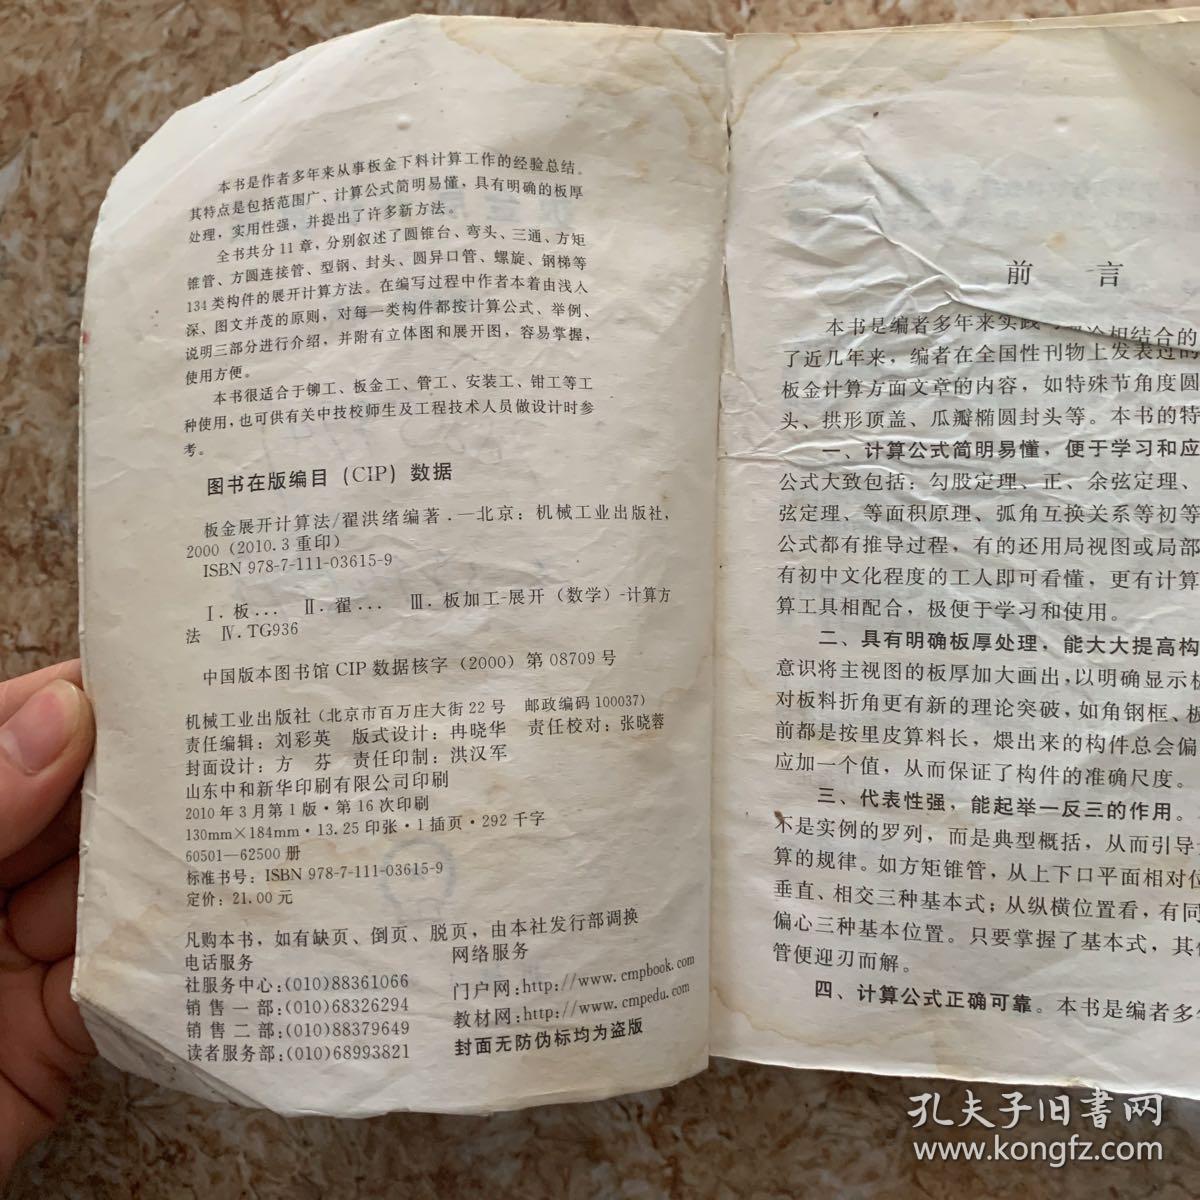 本书是作者多年来从事板金下料计算工作的经验总结。
其特点是包括范围广、计算公式简明易懂，具有明确的板厚
处理，实用性强，并提出了许多新方法。
全书共分11章，分别叙述了圆锥台、弯头、三通、方矩
锥管、方圆连接管、型钢、封头、圆异口管、螺旋、钢梯等
134类构件的展开计算方法。在编写过程中作者本着由浅入
深、图文并茂的原则，对每一类构件都按计算公式、举例、
说明三部分进行介绍，并附有立体图和展开图，容易掌握，
使用方便。
本书很适合于铆工、板金工、管工、安装工、钳工等工
种使用，也可供有关中技校师生及工程技术人员做设计时参
考。
图书在版编目（CIP）数据
板金展开计算法/翟洪绪编著.—北京：机械工业出版社，
2000（2010.3重印）
ISBN 978-7-111-03615-9
Ⅰ.板... Ⅱ.翟... Ⅲ.板加工-展开（数学）-计算方
法 Ⅳ.TG936
中国版本图书馆CIP数据核字（2000）第08709号
机械工业出版社（北京市百万庄大街22号 邮政编码100037）
责任编辑：刘彩英 版式设计：冉晓华 责任校对：张晓蓉
封面设计：方 芬 责任印制：洪汉军
山东中和新华印刷有限公司印刷
2010年3月第1版·第16次印刷
130mm×184mm·13.25印张·1插页·292千字
60501—62500册
标准书号：ISBN 978-7-111-03615-9
定价：21.00元
凡购本书，如有缺页、倒页、脱页，由本社发行部调换
电话服务 网络服务
社服务中心：(010)88361066 门户网：http://www.cmpbook.com
销售一部：(010)68326294 教材网：http://www.cmpedu.com
销售二部：(010)88379649 封面无防伪标均为盗版
读者服务部：(010)68993821
前 言
本书是编者多年来实践 相结合的
了近几年来，编者在全国性刊物上发表过的
板金计算方面文章的内容，如特殊节角度圆
头、拱形顶盖、瓜瓣椭圆封头等。本书的特
一、计算公式简明易懂，便于学习和应
公式大致包括：勾股定理、正、余弦定理、
弦定理、等面积原理、弧角互换关系等初等
公式都有推导过程，有的还用局视图或局部
有初中文化程度的工人即可看懂，更有计算
算工具相配合，极便于学习和使用。
二、具有明确板厚处理，能大大提高构
意识将主视图的板厚加大画出，以明确显示板
对板料折角更有新的理论突破，如角钢框、板
前都是按里皮算料长，煨出来的构件总会偏
应加一个值，从而保证了构件的准确尺度。
三、代表性强，能起举一反三的作用。
不是实例的罗列，而是典型概括，从而引导
算的规律。如方矩锥管，从上下口平面相对位
垂直、相交三种基本式；从纵横位置看，有同
偏心三种基本位置。只要掌握了基本式，其他
管便迎刃而解。
四、计算公式正确可靠。本书是编者多年
孔夫子旧书网
www.kongfz.com